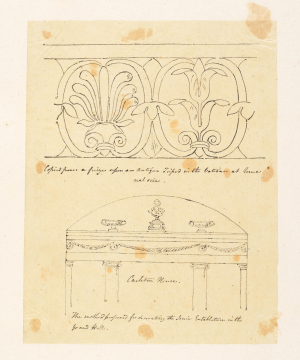 Copied from a frieze upon an antique Tripod in the Vatican at Rome
real size.
Carlton House.
The method proposed for decorating the Ionic Entablature in the
Grand Hall.